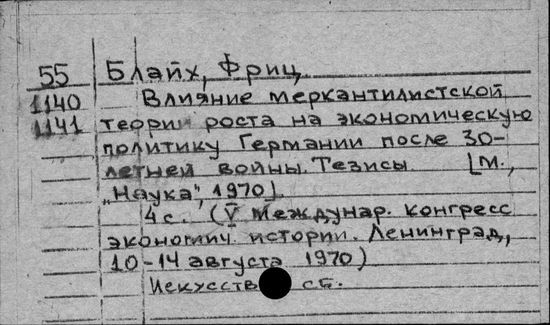 55 Блайх, Фриц
1140 Влияние меркантилистской
1141 теории роста на экономическую
политику Германии после 30-
летней войны. Тезисы. [М.,
„Наука", 1970].
4 с. (V Междунар. конгресс
экономич. истории. Ленинград,
10-14 августа 1970)
сб.